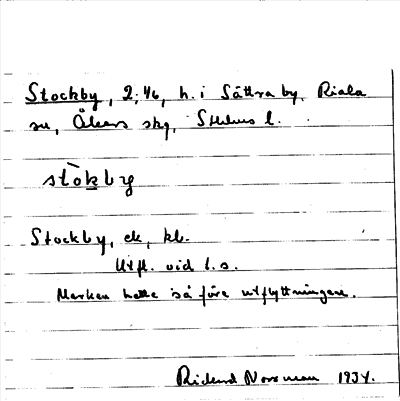 Stockby, 2:46, h. i Sättra by, Riala
sn, Åkers skg, Sthlms l.
stòkby
Stockby, ek, kb.
Utfl. vid l. s.
Marken hette så före utflyttningen.
Rickard Norsman 1934.